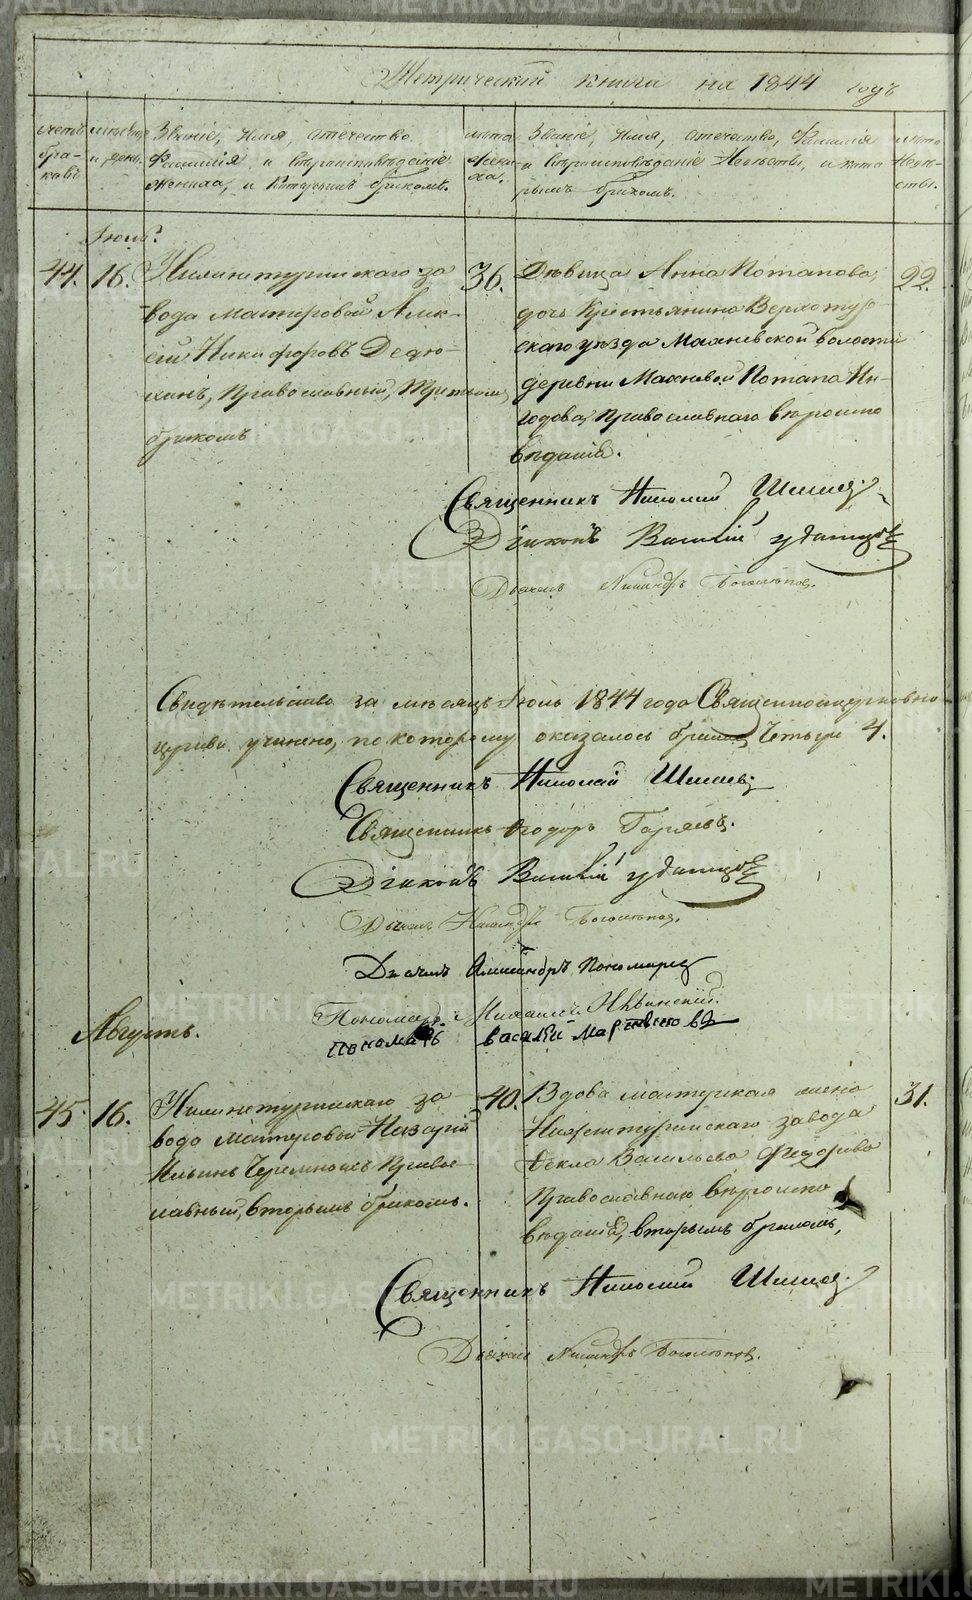 Метрической книги на 1844 годъ
счетъ браковъ
мѣсяцъ и день.
Званіе, имя, отечество фамилія и вѣроисповѣданіе жениха, и которымъ бракомъ.
лѣта жениха.
Званіе, имя, отечество, фамилія и вѣроисповѣданіе невѣсты, и которымъ бракомъ.
лѣта невѣсты.
Іюль.
44. 16.
Нижнетуринскаго за-
вода мастеровой Алек-
сѣй Никифоровъ Дедю-
хинъ, православный, третьимъ
бракомъ
36.
Дѣвица Анна Потапова,
дочь крестьянина Верхотур-
скаго уѣзда Махневской волости
деревни Махневой Потапа
православнаго вѣроиспо
вѣданія.
22.
Священникъ Николай
Діаконъ Василій Удинцовъ
Дьячекъ Боголѣповъ.
Свидѣтельство за мѣсяцъ Іюль 1844 года Священноицерковно-
учинено, по которому оказалось браковъ четыре 4.
Священникъ Николай
Священникъ Ѳеодоръ
Діаконъ Василій Удинцовъ
Дьячекъ Боголѣповъ.
Дьячекъ Александръ Пономаревъ
Пономарь Михаилъ
пономарь василій
Августъ.
45. 16.
Нижнетуринскаго за-
вода мастеровой Назарій
Ильинъ правос-
лавный, вторымъ бракомъ.
40.
Вдова мастерская жена
Нижнетуринскаго завода
Ѳекла Васильева Ѳедорова
православнаго вѣроиспо
вѣданія, вторымъ бракомъ,
31.
Священникъ Николай
Дьячекъ Боголѣповъ.
METRIKI.GASO-URAL.RU